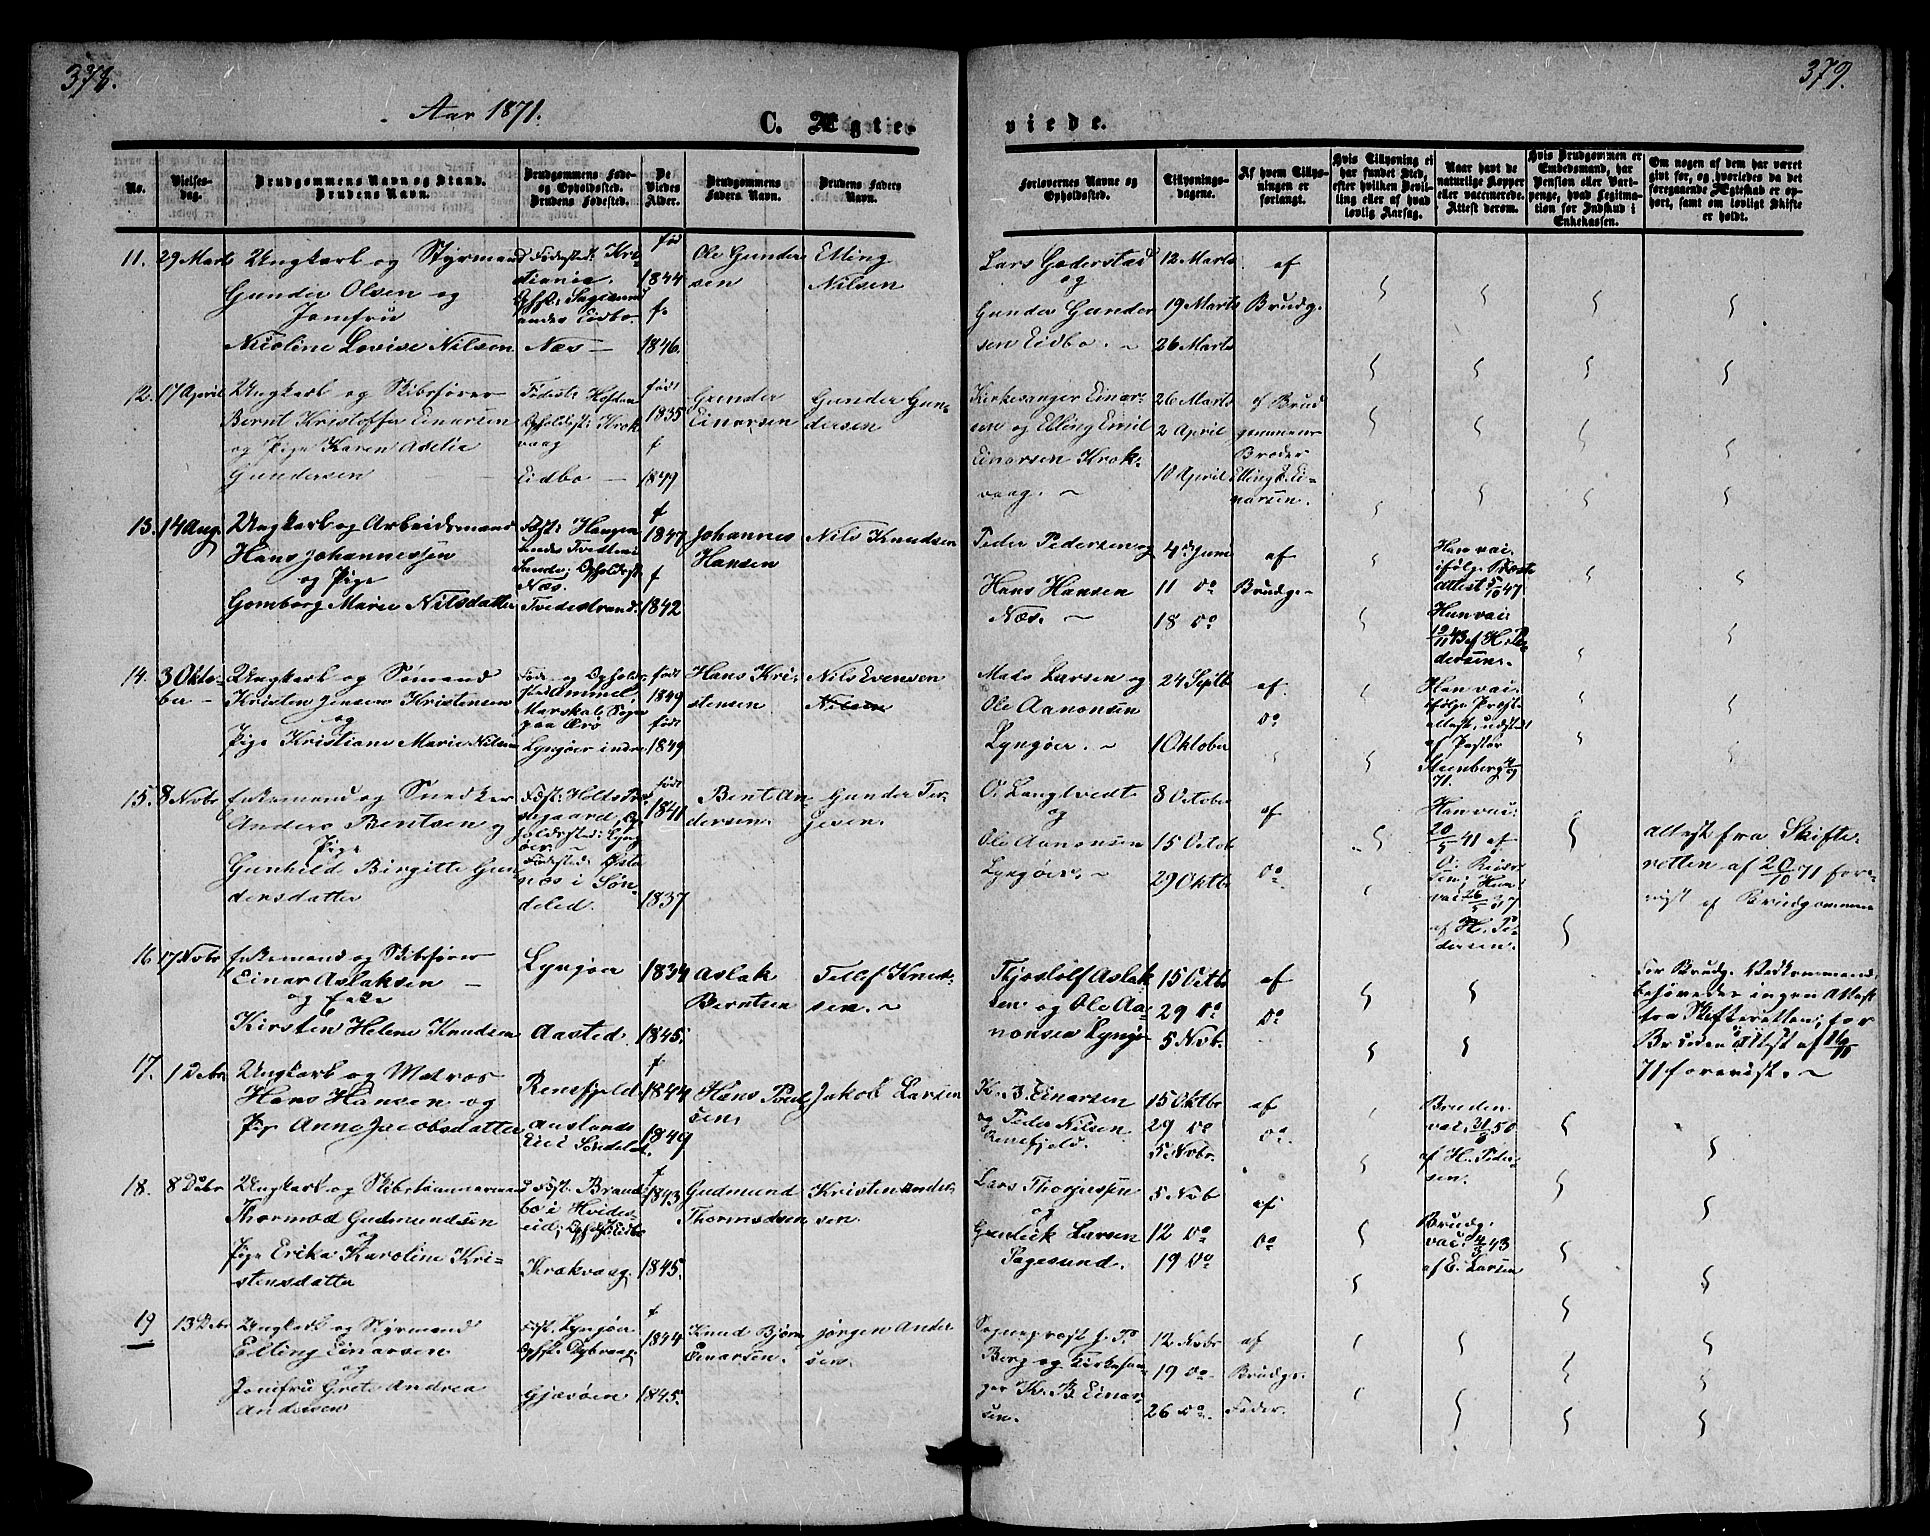 378.
Aar 1871.
C. Ægte-
No.
Vielses-
dag.
Brudgommens Navn og Stand.
Brudens Navn.
Brudgommens Føde-
og Opholdssted.
Brudens Fødested.
De
Viedes
Alder.
Brudgommens
Faders Navn.
Brudens Faders
Navn.
11. 29 Marts Ungkarl og Styrmand
Gunder Olsen og
Jomfru
Nicoline Lovise Nilsen
Fødested: Kri-
stiania.
Næs
fød
1844
f.
1846.
Ole Gunder
sen
Elling
Nilsen
12. 17 April Ungkarl og Skibsfører
Bernt Kristoffer Einarsen
og Pige Karen Adelia
Gundersen
Eidbo
født
1835
f
1849
Gunder
Einarsen
Gunder Gun-
dersen
13. 14 Aug. Ungkarl og Arbeidsmand
Hans Johannessen
og Pige
Gomborg Marie Nilsdatter
Næs.
Tvedestrand.
f
1847
f
1842
Johannes
Hansen
Nils Knudsen
14. 3 Okto-
ber
Ungkarl og Sømand
Kristen Jensen Kristensen
og
Pige Kristiane Marie Nilsen
Føde og Opholds-
sted Ommel
Marskals Sogn
paa Ærø
Lyngøer indre
født
1849
født
1849
Hans Kri-
stensen
Nils Evensen
Nilsen
15. 8 Novbr Enkemand og Snedker
Anders Berntsen og
Pige
Gunhild Birgitte Gun
dersdatter
Fødested: Østre
næs i Søn-
deled.
født
1841
1837
Bent An
dersen.
Gunder Ter-
jesen.
16. 17 Novbr Enkemand og Skibsfører
Einar Aslaksen
og Enke
Kirsten Helene Knudsen
Lyngøer
Aasted.
1834
1845.
Aslak
Berntsen
Tellef Knud-
sen.
17. 1 Debr Ungkarl og Matros
Hans Hansen og
Pige Anne Jacobsdatter
Renesfjeld
Søndeled.
f
1844
1849
Hans Poul
sen,
Jakob Larsen
18. 8 Debr Ungkarl og Skibstømmermand
Thormod Gudmundsen
og
Pige Erika Karoline Kri-
stensdatter
Fost. Brand
bo i Hvides-
eid; Ophst. Eidbo
Krokvaag.
f
1843
1845.
Gudmund
Thormodsen
Kristen Ander-
sen.
19 13 Debr Ungkarl og Styrmand
Elling Einarsen
og
Jomfru Grete Andrea
Andersen
Fost. Lyngøer
Ophst. Dybvaag
Gjævøen
f
1844
1845.
Knud Bjørn
Einarsen.
Jørgen Ander
sen.
379.
viede.
Forlovernes Navne og
Opholdssted.
Tillysnings-
dagene.
Af hvem Tillys-
ningen er
forlangt.
Hvis Tillysning ei
har fundet Sted,
efter hvilken Bevil-
ling eller af hvad
lovlig Aarsag.
Naar havt de
naturlige Kopper
eller vaccinerede.
Attest derom.
Hvis Brudgommen er
Embedsmand, har
Pension eller Vart-
penge, hvad Legitima-
tion for Indskud i
Enkekassen.
Om nogen af dem har været
gift før, og hvorledes da det
foregaaende Ægteskab er op-
hørt, samt om lovligt Skifte
er holdt.
Lars Goderstad
og
Gunder Gunder
sen Eidbo.
12 Marts
19 Marts
26 Marts
af
Brudg.
Kirkesanger Einar-
sen og Elling Emil
Einarsen Krok-
vaag.
26 Marts
2 April
10 April
af Brud
gommens
Broder
Elling E. Ei-
narsen.
Peder Pedersen og
Hans Hansen
Næs.
4de Juni
11 do
18 do
af
Brudg.
Han vac.
ifølge Præste
attest 5/10 47
Hun vac.
10/11 43 af H. Pe-
dersen.
Mads Larsen og
Ole Aanonsen
Lyngøer.
24 Septb
1 Oktober
af
do
Han vac.
ifølge Præste
attest, udstedt
af Pastor
Steenberg 4/9
71.
O. Langtvedt
og
Ole Aanonsen
Lyngøer.
8 October
15 Octob
29 Oktb
af
do
Han vac.
20/5 41 af
O. Reier
sen; Hun
vac. 26/5 37
af H. Pe-
dersen.
Attest fra Skifte-
retten af 20/10 71 fore-
vist af Brudgommen
Thjostolf Aslak
sen og Ole Aa-
nonsen Lyngør
15 Octb
29 do
5 Nvb.
af
do
For Brudg. Vedkommende
behøvedes ingen Attest
fra Skifteretten; for
Bruden Attest af
71 forevist.
K. B. Einarsen
og Peder Nilsen
Renesfjeld.
15 Oktbr
29 do
5 Novbr.
af
do.
Bruden
vac. 21/8 50
af H. Peder-
sen.
Lars Thorjussen
og
Gundeik Larsen
Sagesund.
5 Nvb
12 do
19 do
af
do
Brudg.
vac. 4/3 43
af E. Larsen
Sogneprest J. P.
Berg og Kirkesan-
ger K. B. Einar-
sen.
12 Novbr
19 do
26 do.
af
Brudg.
Fader.